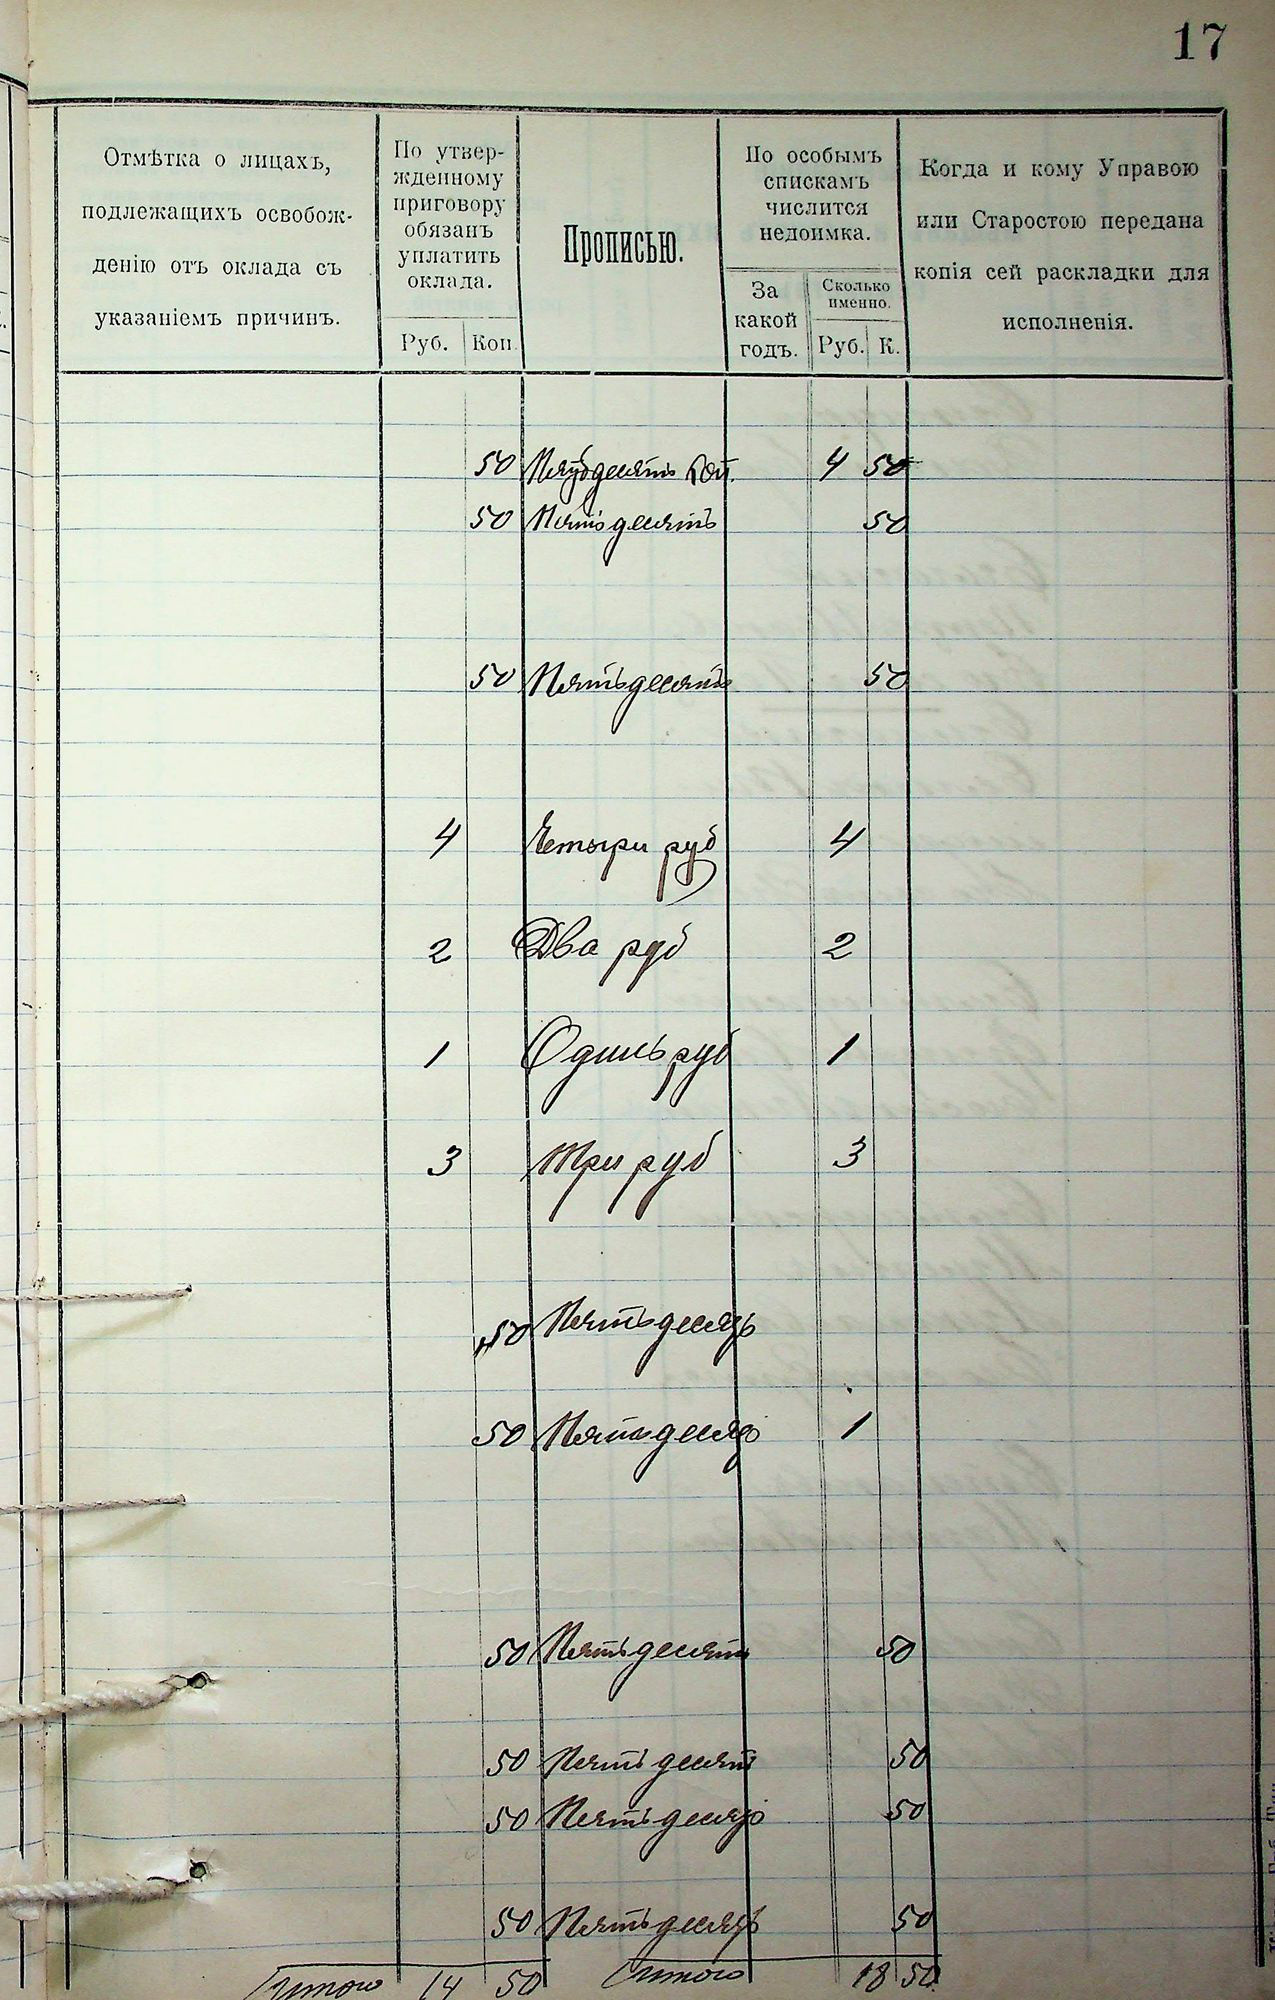 17
Отмѣтка о лицахъ,
подлежащихъ освобож-
денію отъ оклада съ
указаніемъ причинъ.
По утвер-
жденному
приговору
обязанъ
уплатить
оклада.
Руб. Коп.
Прописью.
По особымъ
спискамъ
числится
недоимка.
За
какой
годъ.
Сколько
именно.
Руб. К.
Когда и кому Управою
или Старостою передана
копія сей раскладки для
исполненія.
50 Пятьдесятъ коп. 4 50
50 Пятьдесятъ 50
50 Пятьдесятъ 50
4 Четыри руб 4
2 Два руб 2
1 Одинъ руб 1
3 Три руб 3
„50 Пятьдесятъ
50 Пятьдесятъ 1
50 Пятьдесятъ 50
50 Пятьдесятъ 50
50 Пятьдесятъ 50
50 Пятьдесятъ 50
Итого 14 50 Итого 18 50